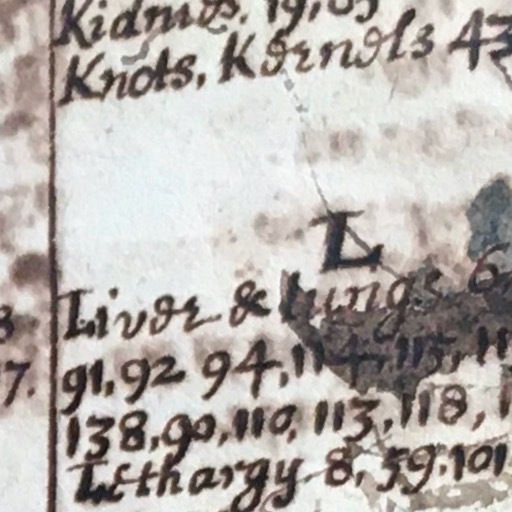 Kidnies. 19,
Knots, Kernels 43
L
Liver & Lungs 6
91, 92 94, 114, 115, 11
7.
138, 90, 110, 113, 118, 1
Lethargy 8, 59, 101